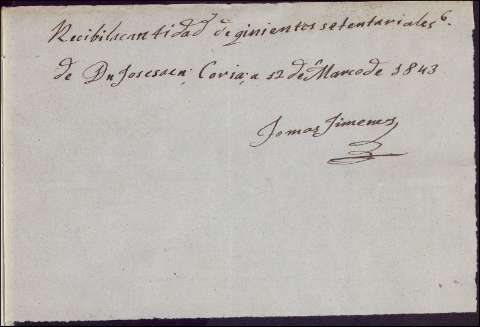 Recibi la cantidad de qinientos setenta riales
de Dn Jose saca; Coria; a 12 de Marco de 1843
Tomas Jimenes